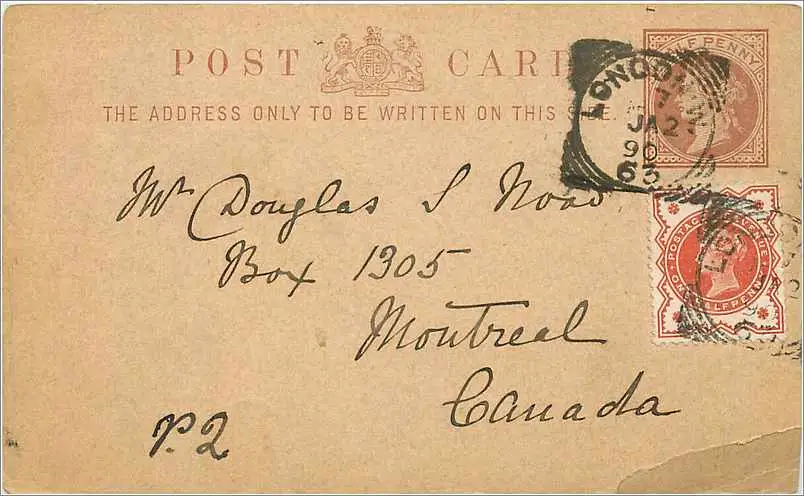 POST CARD
HALF PENNY
THE ADDRESS ONLY TO BE WRITTEN ON THIS SIDE.
LONDON
7
JA 2
90
63
Mr Douglas S Noad
Box 1305
Montreal
Canada
POSTAGE REVENUE
ONE HALF PENNY
P.2